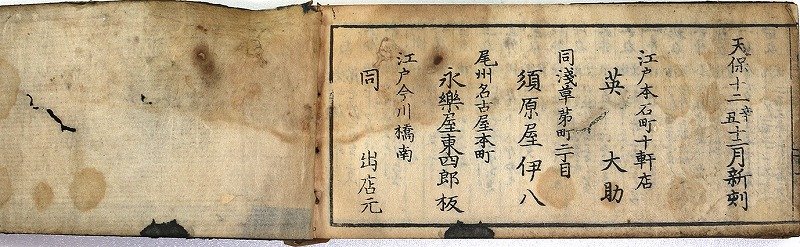 天保十二辛丑十二月新刻
江戸本石町十軒店
英 大助
同淺草茅町二丁目
須原屋伊八
尾州名古屋本町
永樂屋東四郎板
江戸今川橋南
同 出店元